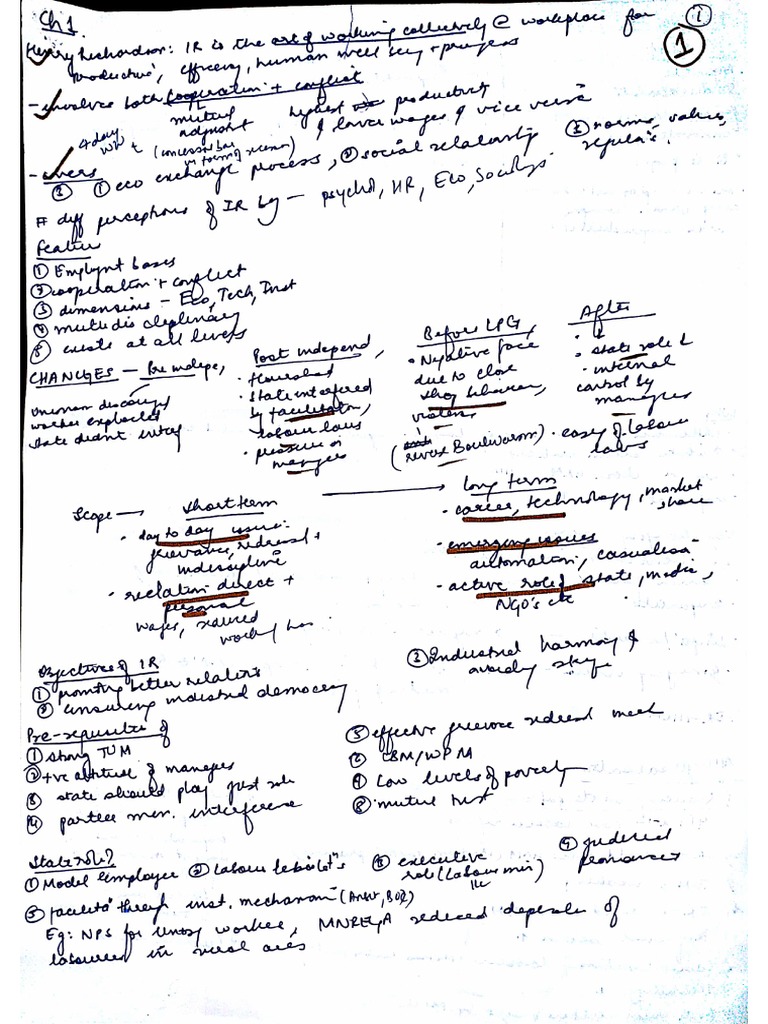 Ch 1.
①
1
Henry Richardson: IR is the art of working collectively @ workplace for
productive, efficiency, human well being + progress
- involves both cooperation + conflict
mutual adjustmt
highest productivity
& lower wages & vice versa
4 day
(concession bar in form of
- covers
③ ① eco exchange process, ② social relationship ③ norms, values,
regulas.
# diff perceptions of IR by — psychol, HR, Eco, Sociolgs
Feature
① Emplymt bases
② cooperation + conflict
③ dimensions — Eco, Tech, Inst
④ multi disciplinary
⑤ exists at all levels
CHANGES — Pre indepe,
unionism discouraged
worker exploited
state didn't
Post independ,
· flourished
· state interfered
by facilitator,
labour laws
· pressure on
managers
Before LPG,
· Negative face
due to close
shop behaviour,
violence
(reverse Boulwarism)
After
· state role ↓
· internal
control by
managers
· easy of labour
laws
Scope →
short term
· day to day issues:
grievance, redressal +
indiscipline
· relation direct +
personal
wages, reduced
working hrs
long term
· career, technology, market
share
· emerging issues
automation, casualisan
- active role of state, media,
NGO's etc
Objectives of IR
① promoting better relations
② ensuring industrial democracy
③ Industrial harmony &
avoidg
Pre-requisites of
① strong TUM
② +ve attitude of managers
③ state should play just role
④ parties min. interference
⑤ effective grievance redressal mech
⑥ CBM/WPM
⑦ low levels of poverty
⑧ mutual trust
State role?
① Model Employer ② Labour legislatns ③ executive
role (Labour min)
④ judicial
⑤ facilita through inst. mechanism
Eg: NPS for unorg worker, MNREGA reduced depende of
labourers in rural areas